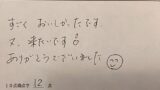 すごく おいしかったです。
又、来たいです
ありがとうございました
10点満点中 12 点